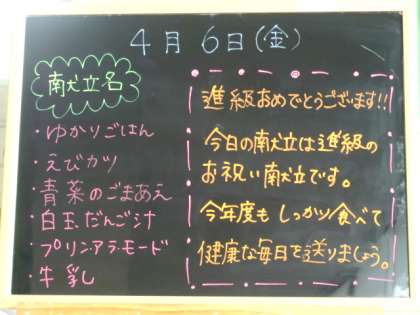 4月6日(金)
献立名
・ゆかりごはん
・えびカツ
・青菜のごまあえ
・白玉だんご汁
・プリンアラモード
・牛乳し
進級おめでとうございます!!
今日の献立は進級の
お祝い献立です。
今年度もしっかり食べて
健康な毎日を送りましょう。